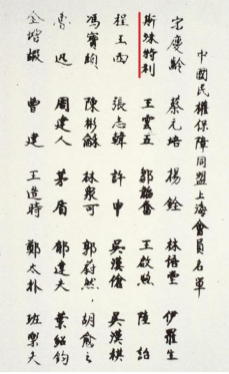 中國民權保障同盟上海會員名單
宋慶齡 蔡元培 楊銓 林語堂 伊羅生
斯沫特利 王雲五 鄒韜奮 王啟煦 陸詒
程玉西 張志韓 許申 吳漢 吳漢祺
馮賓 陳彬龢 林眾可 郭蔚然 胡愈之
魯迅 周建人 茅盾 郁達夫 葉紹鈞
全增嘏 曹建 王造時 鄭太朴 班樂夫